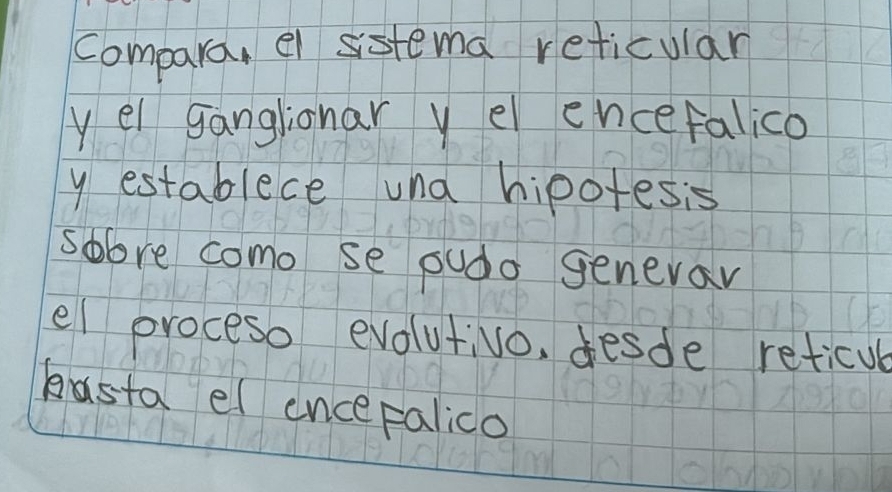 Compara, el sistema reticular
y el ganglionar y el encefalico
y establece una hipotesis
sobre como se pudo generar
el proceso evolutivo. desde reticul
hasta el encefalico